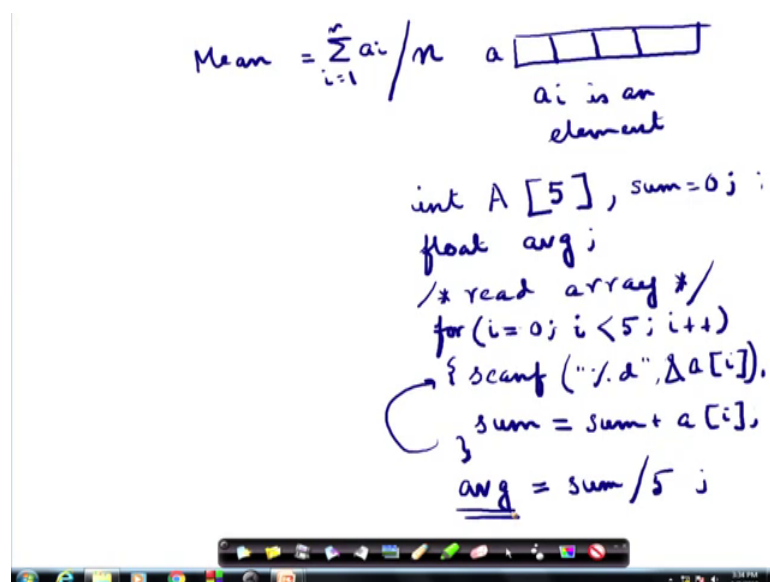 Mean = n∑i=1 ai / n a
ai is an
element
int A [5], sum=0;
float avg;
/* read array */
for (i= 0; i < 5; i++)
{ scanf ("%d", &a[i]),
sum = sum + a [i],
}
avg = sum / 5 ;
3:34 PM